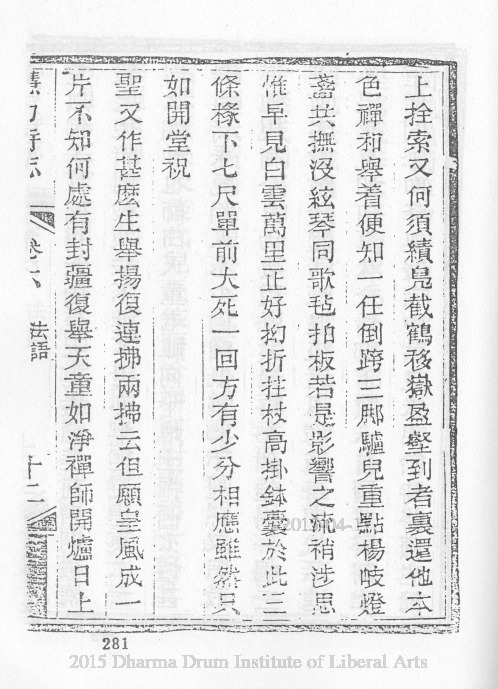 上拴索又何須續鳧截鶴移嶽盈壑到者裏還他本
色禪和舉着便知一任倒跨三脚驢兒重點楊岐燈
盞共撫沒絃琴同歌毡拍板若是影響之流稍涉思
惟早見白雲萬里正好拗折拄杖高掛鉢囊於此三
條椽下七尺單前大死一回方有少分相應雖然只
如開堂祝
聖又作甚麽生舉揚復連拂兩拂云但願皇風成一
片不知何處有封疆復舉天童如淨禪師開爐日上
寺志 卷六 法語 十二
281
2015 Dharma Drum Institute of Liberal Arts